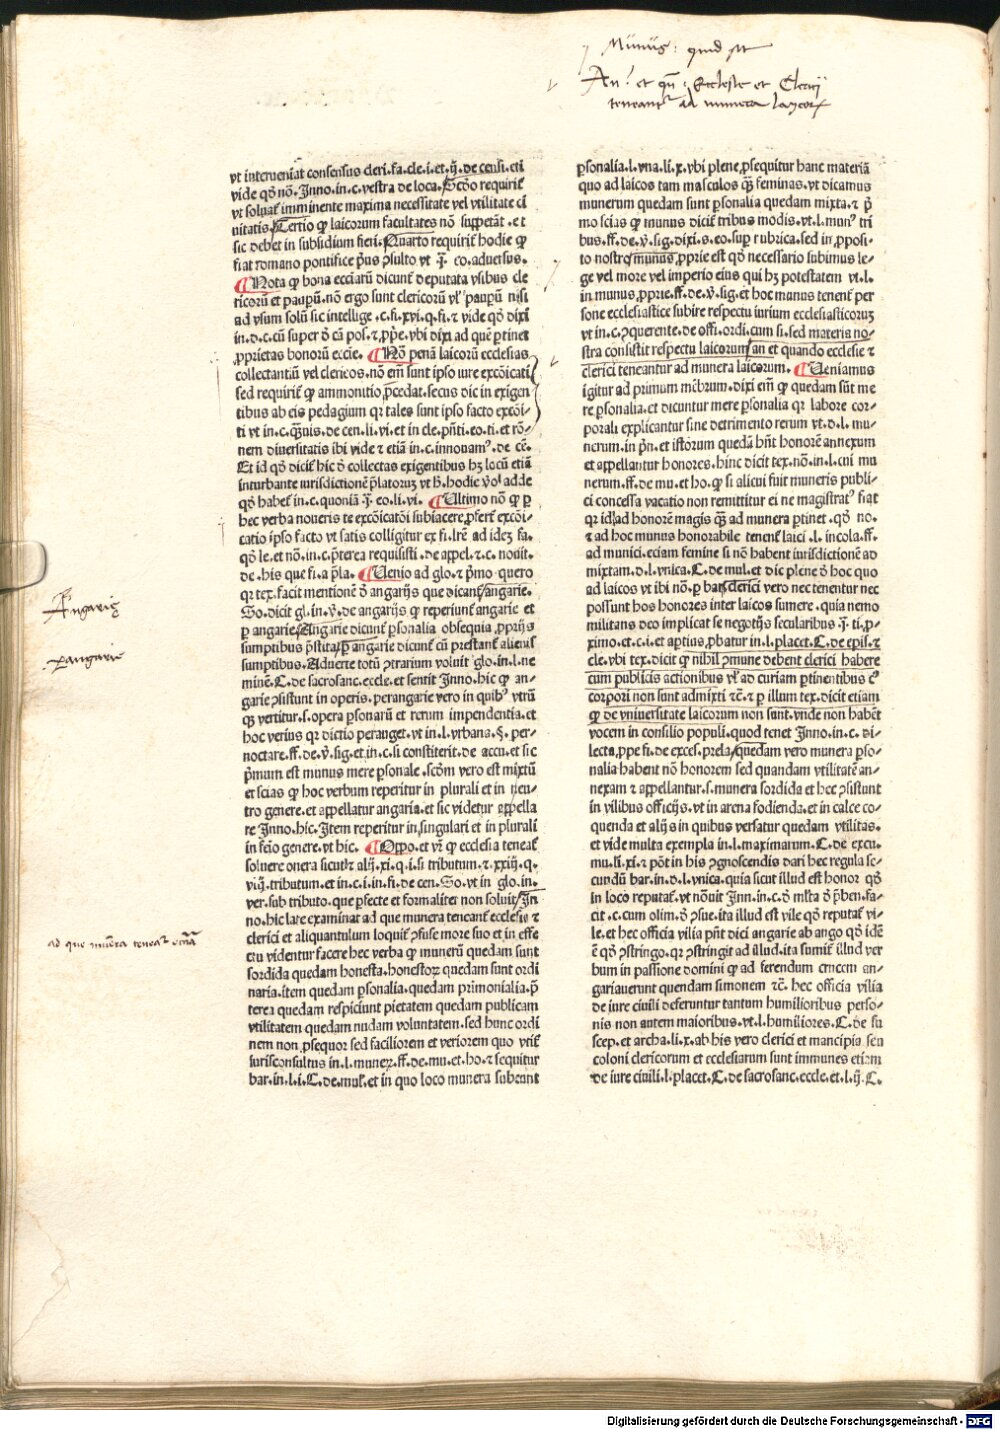 Munus: quid sit
An et qn̄ Ecclesie et Clerici
teneant᷑ ad munera laycorꝝ
vt interueniat consensus cleri.fa.cle.i.et.ij.de censi.eti
vide qđ nō.Inno.in.c.vestra de loca.Scđo requirit᷑
vt soluat᷑ imminente maxima necessitate vel vtilitate ci
uitatis.Tertio ꝙ laicorum facultates nō suppetāt.et
sic debet in subsidium fieri.Quarto requirit᷑ hodie ꝙ
fiat romano pontifice pͥus ↄsulto vt .j̄. co.aduersus.
¶Nota ꝙ bona ecciarū dicunt᷑ deputata vsibus cle
ricorū et pauperū.nō ergo sunt clericorū vl᷑ pauperū nisi
ad vsum solū sic intellige.c.fi.xvi.q.fi.⁊ vide qđ dixi
in.d.c.cū super ð cā pos.⁊ ꝓpͥe.vbi dixi ad quē ꝑtinet
ꝓprietas bonorū eccie. ¶Nō penā laicorū ecclesias
collectantiū vel clericos.nō em̄ sunt ipso iure excōicati
sed requirit᷑ ꝙ ammonitio ꝓcedat.secus dic in exigen
tibus ab eis pedagium qꝛ tales sunt ipso facto excōi-
ti vt in.c.quāuis.de cen.li.vi.et in cle.pn̄ti.eo.ti.et rō-
nem diuersitatis ibi vide ⁊ etiā in.c.innouamꝰ.de cē.
Et id qđ dicit᷑ hic ð collectas exigentibus hꝫ locū etiā
inturbante iurisdictionē p̄latorū vt h̄.hodie v̓o adde
qđ habet᷑ in.c.quoniā .j̄. eo.li.vi. ¶Ultimo nō ꝙ ꝑ
hec verba noueris te excōicatōi subiacere ꝓfert᷑ excōi-
catio ipso facto vt satis colligitur ex fi.lr̄e ad idem fa.
qđ le.et nō.in.c.p̄terea requisisti.de appel.⁊.c.nouit.
de.his que fi.a p̄la. ¶Uenio ad glo.⁊ pͥmo quero
qꝛ tex.facit mentionē ð angarijs que dicant᷑ angarie.
So.dicit gl.in.v̓.de angarijs ꝙ reperiunt᷑ angarie et
ꝑ angarie.Angarie dicunt᷑ ꝑsonalia obsequia ꝓprijs
sumptibus p̄stita.ꝑ angarie dicunt᷑ cū prestant᷑ alienis
sumptibus.Aduerte totū ↄtrarium voluit glo.in.l.ne
minē.C.de sacrosanc.eccle.et sentit Inno.hic ꝙ an-
garie ↄsistunt in operis.perangarie vero in quibꝰ vtrū
ꝙ vertitur.s.opera ꝑsonarū et rerum impendentia.et
hoc verius qꝛ dictio peranget.vt in.l.vrbana.§.per-
noctare.ff.de.v̓.sig.et in.c.si constiterit.de accu.et sic
pͥmum est munus mere ꝑsonale.scđm vero est mixtū
et scias ꝙ hoc verbum reperitur in plurali et in neu-
tro genere.et appellatur angaria.et sic videtur appella
re Inno.hic.Item reperitur in singulari et in plurali
in feīo genere.vt hic. ¶Oppo.et vr̄ ꝙ ecclesia teneat᷑
soluere onera sicut ⁊ alij.xi.q.i.si tributum.⁊ xxiij.q.
viij.tributum.et in.c.i.in fi.de cen.So.vt in glo.in.
ver.sub tributo.que ꝑfecte et formaliter non soluit.In
no.hic late examinat ad que munera teneant᷑ ecclesie ⁊
clerici et aliquantulum loquit᷑ ↄfuse more suo et in effe
ctu videntur facere hec verba ꝙ munerū quedam sunt
sordida quedam honesta.honestorꝫ quedam sunt ordi
naria.item quedam ꝑsonalia.quedam primonialia.p̄
terea quedam respiciunt pietatem quedam publicam
vtilitatem quedam nudam voluntatem.sed hunc ordi
nem non ꝓsequor sed faciliorem et veriorem quo vtit᷑
iurisconsultus in.l.munerꝫ.ff.de.mu.et.ho.⁊ sequitur
bar.in.l.i.C.de.mul᷑.et in quo loco munera subeunt
Angarie
ꝑangarie
ad que munera teneat᷑ ecc̄ia
ꝑsonalia.l.vna.li.x.vbi plene ꝓsequitur hanc materiā
quo ad laicos tam masculos quā feminas.vt dicamus
munerum quedam sunt ꝑsonalia quedam mixta.⁊ pͥ
mo scias ꝙ munus dicit᷑ tribus modis.vt.l.munꝰ tri
bus.ff.de.v̓.sig.dixi.s.eo.sup rubrica.sed in ꝓposi-
to nostro munus ꝓprie est qđ necessario subimus le-
ge vel more vel imperio eius qui hꝫ potestatem vt.l.
in munus ꝓprie.ff.de.v̓.sig.et hoc munus tenent᷑ per
sone ecclesiastice subire respectu iurium ecclesiasticorum
vt in.c.ↄquerente.de offi.ordi.cum si.sed materia no-
stra consistit respectu laicorum an et quando ecclesie ⁊
clerici teneantur ad munera laicorum. ¶Ueniamus
igitur ad primum mēbrum.dixi em̄ ꝙ quedam sūt me
re ꝑsonalia.et dicuntur mere ꝑsonalia qꝛ labore cor-
porali explicantur sine detrimento rerum vt.d.l.mu-
nerum.in pͥn.et istorum quedā hn̄t honorē annexum
et appellantur honores.hinc dicit tex.nō.in.l.cui mu
nerum.ff.de.mu.et.ho.ꝙ si alicui fuit muneris publi-
ci concessa vacatio non remittitur ei ne magistratꝰ fiat
qꝛ id ad honorē magis quā ad munera ꝑtinet.qđ no.
⁊ ad hoc munus honorabile tenent᷑ laici.l.incola.ff.
ad munici.eciam femine si nō habent iurisdictionē ad
mixtam.d.l.vnica.C.de mul.et dic plene ð hoc quo
ad laicos vt ibi nō.ꝑ bar.clerici vero nec tenentur nec
possunt hos honores inter laicos sumere.quia nemo
militans deo implicat se negotijs secularibus .j̄. ti.ꝓ-
ximo.et.c.i.et aptius ꝓbatur in.l.placet.C.de epis.⁊
cle.vbi tex.dicit ꝙ nihil ↄmune debent clerici habere
cum publicis actionibus vl᷑ ad curiam ꝑtinentibus cꝰ
corpori non sunt admixti ⁊c̄.⁊ ꝑ illum tex.dicit etiam
ꝙ de vniuersitate laicorum non sunt.vnde non habēt
vocem in consilio populi.quod tenet Inno.in.c.di-
lecta.ꝓpe fi.de exces.prela.quedam vero munera ꝑso-
nalia habent nō honorem sed quandam vtilitatē an-
nexam ⁊ appellantur.s.munera sordida et hec ↄsistunt
in vilibus officijs.vt in arena fodienda.et in calce co-
quenda et alijs in quibus versatur quedam vtilitas.
et vide multa exempla in.l.maximarum.C.de excu.
mu.li.xi.⁊ pōt in his ↄgnoscendis dari hec regula se-
cundū bar.in.d.l.vnica.quia sicut illud est honor qđ
in loco reputat᷑.vt nōuit Inn.in.c.ð ml̄ta ð pͥben.fa-
cit.c.cum olim.ð ↄsue.ita illud est vile qđ reputat᷑ vi-
le.et hec officia vilia pn̄t dici angarie ab ango qđ idē
ē qđ ↄstringo.qꝛ ↄstringit ad illud.ita sumit᷑ illud ver
bum in passione domini ꝙ ad ferendum crucem an-
gariauerunt quendam simonem ⁊c̄.hec officia vilia
de iure ciuili deferuntur tantum humilioribus perso-
nis non autem maioribus.vt.l.humiliores.C.de su
scep.et archa.li.x.ab his vero clerici et mancipia seu
coloni clericorum et ecclesiarum sunt immunes etiam
de iure ciuili.l.placet.C.de sacrosanc.eccle.et.l.ij.C.
Digitalisierung gefördert durch die Deutsche Forschungsgemeinschaft - DFG